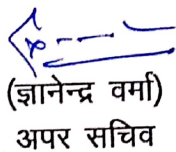 (ज्ञानेन्द्र वर्मा)
अपर सचिव